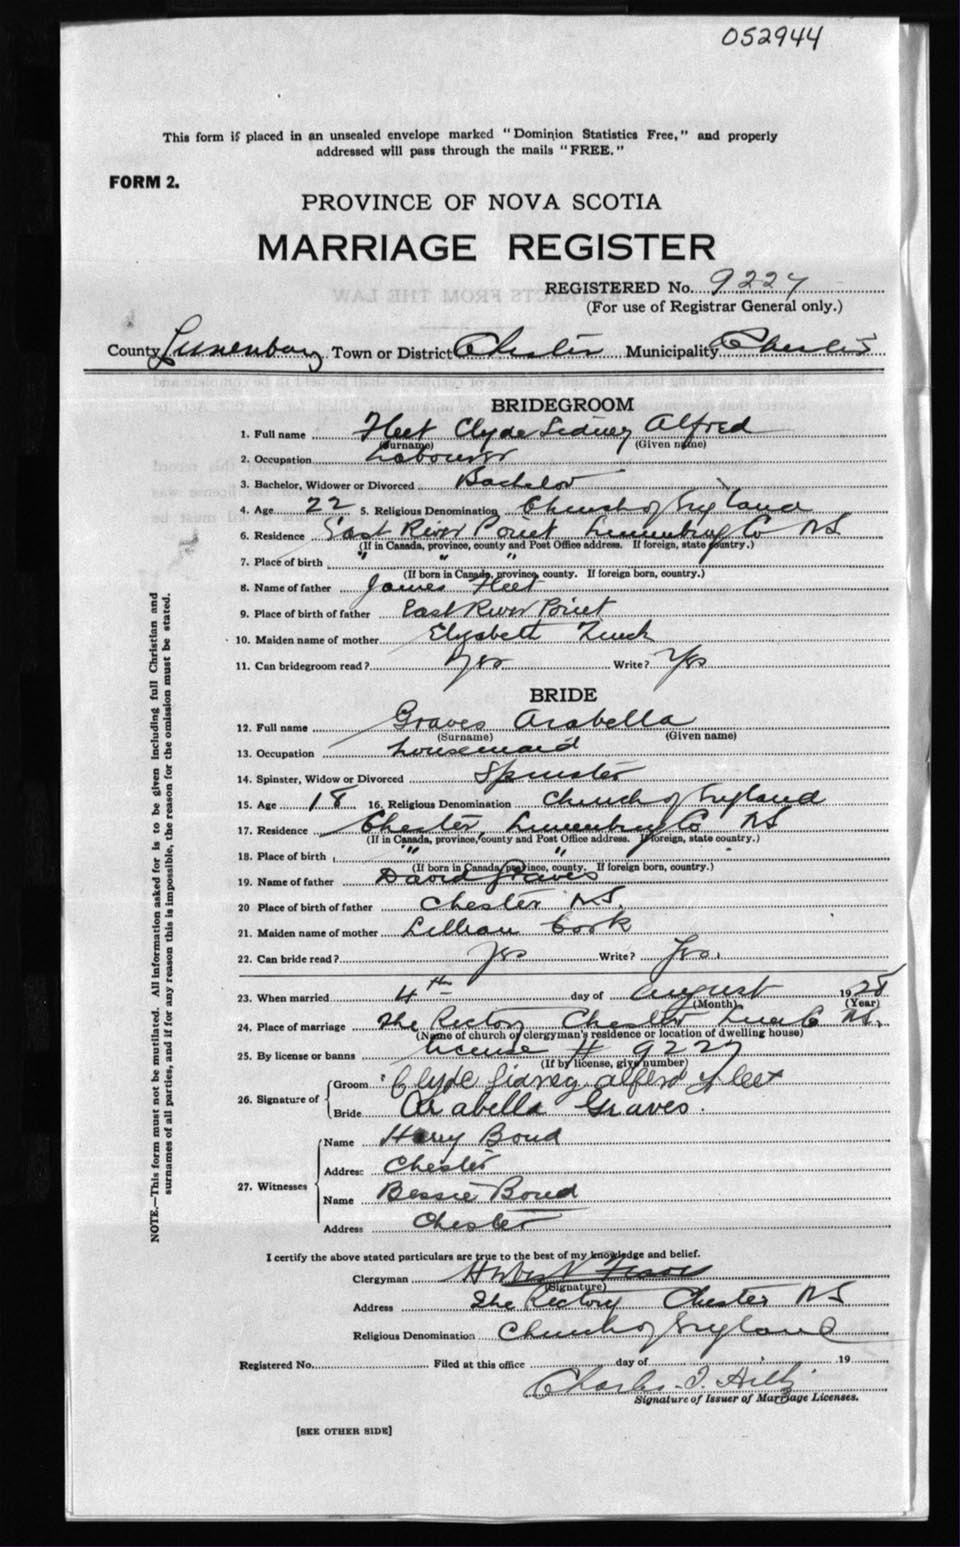 052944
This form if placed in an unsealed envelope marked "Dominion Statistics Free," and properly
addressed will pass through the mails "FREE."
FORM 2.
PROVINCE OF NOVA SCOTIA
MARRIAGE REGISTER
REGISTERED No. 9227
(For use of Registrar General only.)
County Lunenburg Town or District Chester Municipality Chester
BRIDEGROOM
1. Full name Fleet Clyde Sidney Alfred
(Surname) (Given name)
2. Occupation Labourer
3. Bachelor, Widower or Divorced Bachelor
4. Age 22 5. Religious Denomination Church of England
6. Residence East River Point Lunenburg Co NS
(If in Canada, province, county and Post Office address. If foreign, state country.)
7. Place of birth " " "
(If born in Canada, province, county. If foreign born, country.)
8. Name of father James Fleet
9. Place of birth of father East River Point
10. Maiden name of mother Elizabeth
11. Can bridegroom read? Yes Write? Yes
BRIDE
12. Full name Graves Arabella
(Surname) (Given name)
13. Occupation housemaid
14. Spinster, Widow or Divorced Spinster
15. Age 18 16. Religious Denomination Church of England
17. Residence Chester, Lunenburg Co NS
(If in Canada, province, county and Post Office address. If foreign, state country.)
18. Place of birth " "
(If born in Canada, province, county. If foreign born, country.)
19. Name of father David Graves
20 Place of birth of father Chester N.S.
21. Maiden name of mother Lillian Cook
22. Can bride read? Yes Write? Yes.
23. When married 4th day of August 1928
(Month) (Year)
24. Place of marriage The Rectory Chester Lun Co N.S.
(Name of church or clergyman's residence or location of dwelling house)
25. By license or banns License # 9227
(If by license, give number)
26. Signature of Groom Clyde Sidney Alferd Fleet
Bride Arabella Graves.
27. Witnesses
Name Harry Bond
Address Chester
Name Bessie Bond
Address Chester
I certify the above stated particulars are true to the best of my knowledge and belief.
Clergyman
(Signature)
Address The Rectory Chester NS
Religious Denomination Church of England
Registered No. Filed at this office day of 19
Charles I. Hilty
Signature of Issuer of Marriage Licenses.
[SEE OTHER SIDE]
NOTE.—This form must not be mutilated. All information asked for is to be given including full Christian and
surnames of all parties, and if for any reason this is impossible, the reason for the omission must be stated.